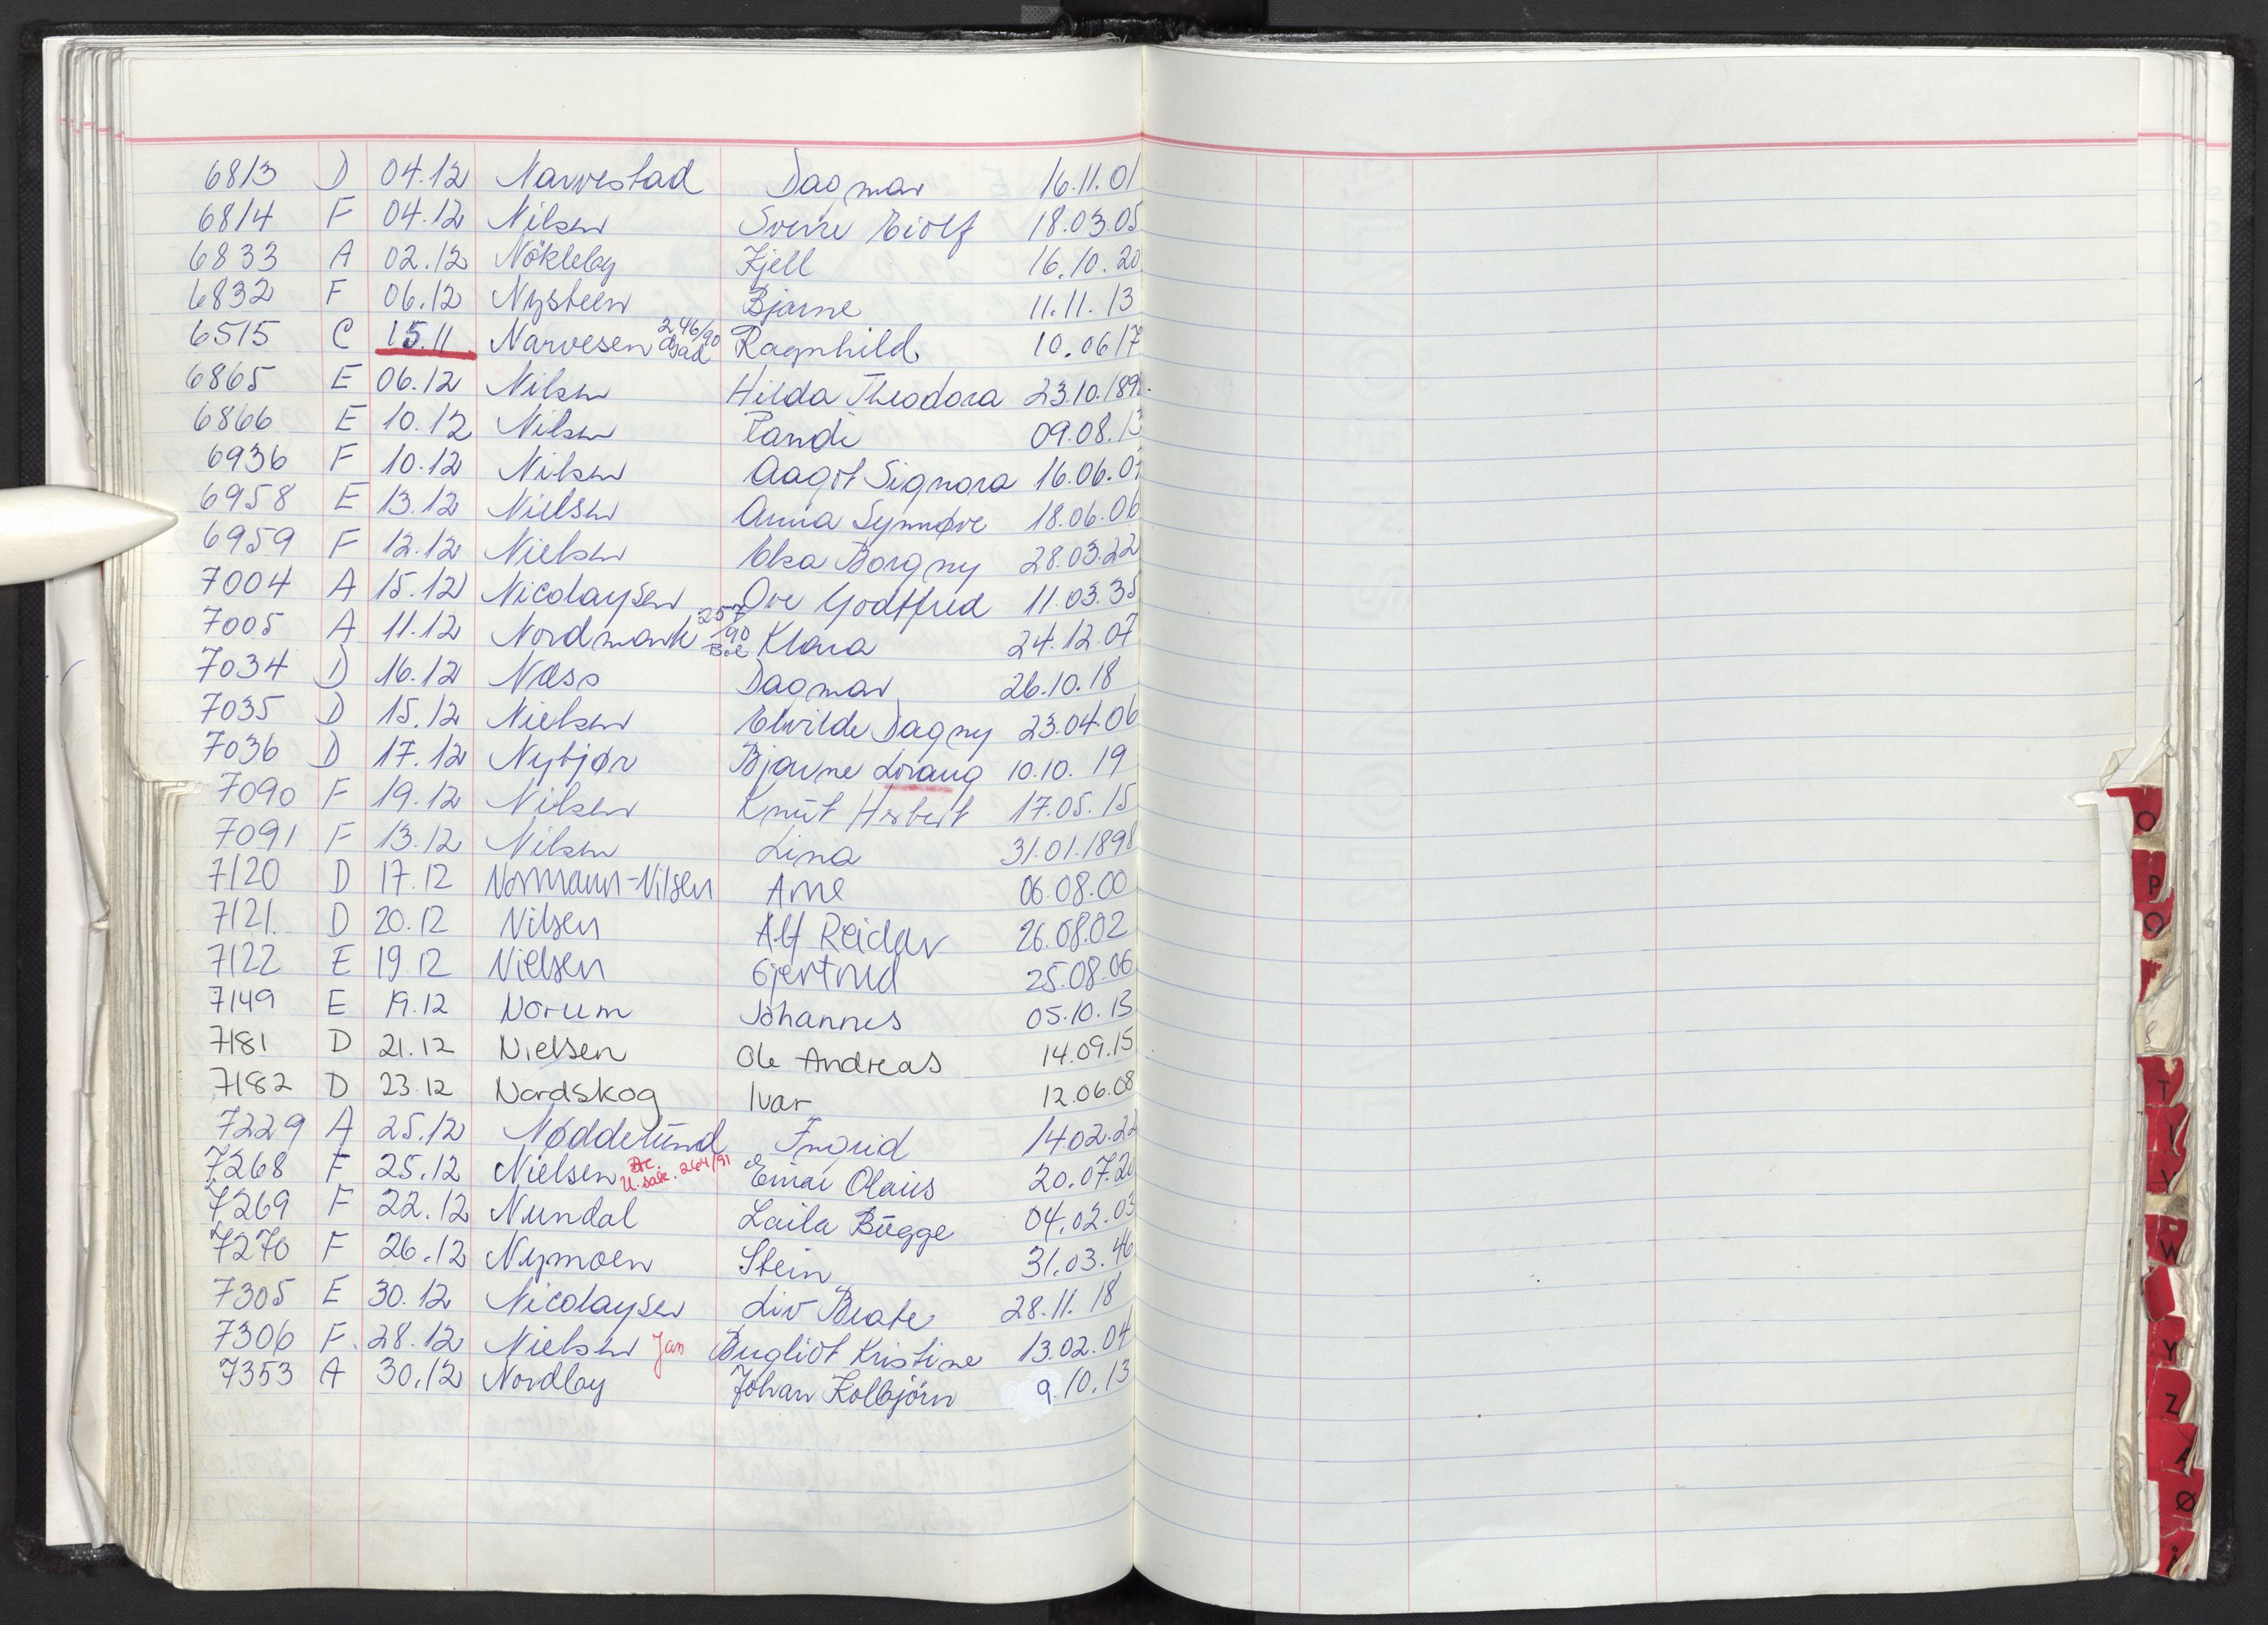 6813 D 04.12 Narvestad Dagmar 16.11.01
6814 F 04.12 Nilsen Sverre Eiolf 18.03.05
6833 A 02.12 Nökleby Kjell 16.10.20
6832 F 06.12 Nysteen Bjarne 11.11.13
6515 C 15.11 Narvesen 246/90 Ragnhild 10.06 17
6865 E 06.12 Nilsen Hilda Theodora 23.10.189
6866 E 10.12 Nilsen Randi 09.08.13
6936 F 10.12 Nilsen Aagot Signora 16.06.07
6958 E 13.12 Nielsen Anna Synnøve 18.06.06
6959 F 12.12 Nielsen Elsa Borgny 28.03.22
7004 A 15.12 Nicolaysen Ove Godtfred 11.03.35
7005 A 11.12 Nordmark 257/90 Klara 24.12.07
7034 D 16.12 Næss Dagmar 26.10.18
7035 D 15.12 Nielsen Elvilde Dagny 23.04.06
7036 D 17.12 Nybjør Bjarne Lorang 10.10.19
7090 F 19.12 Nilsen Knut Herbert 17.05.15
7091 F 13.12 Nilsen Lina 31.01.1898
7120 D 17.12 Normann-Nilsen Arne 06.08.00
7121 D 20.12 Nilsen Alf Reidar 26.08.02
7122 E 19.12 Nielsen Gjertrud 25.08.06
7149 E 19.12 Norum Johannes 05.10.13
7181 D 21.12 Nielsen Ole Andreas 14.09.15
7182 D 23.12 Nordskog Ivar 12.06.08
7229 A 25.12 Nøddelund Ingrid 14.02.22
7268 F 25.12 Nielsen U.sak. 264/91 Einar Olaus 20.07.20
7269 F 22.12 Nundal Laila Bugge 04.02.03
7270 F 26.12 Nymoen Stein 31.03.46
7305 E 30.12 Nicolaysen Liv Beate 28.11.18
7306 F. 28.12 Nielsen Jan Bugliot Kristine 13.02.04
7353 A 30.12 Nordby Johan Kolbjörn 9.10.13
O
P
Q
T
V
W
Y
Z
Ø